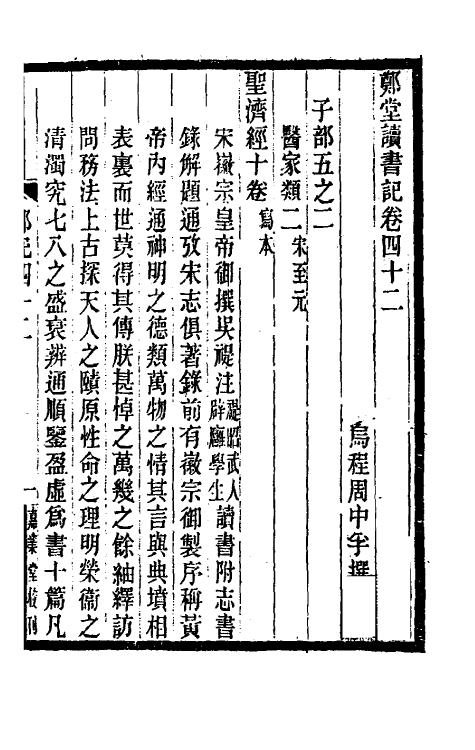 鄭堂讀書記卷四十二
烏程周中孚撰
子部五之二
醫家類二宋至元
聖濟經十卷寫本
宋徽宗皇帝御撰吳禔注禔昭武人辟廱學生讀書附志書
錄解題通攷宋志俱著錄前有徽宗御製序稱黃
帝內經通神明之德類萬物之情其言與典墳相
表裏而世莫得其傳朕甚悼之萬幾之餘紬繹訪
問務法上古探天人之賾原性命之理明榮衞之
清濁究七八之盛衰辨通順鑒盈虛爲書十篇凡
一
嘉業堂校刊